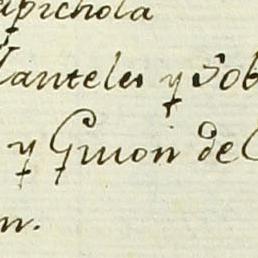 apichola
Manteles y Sob
y Guion de C
n.